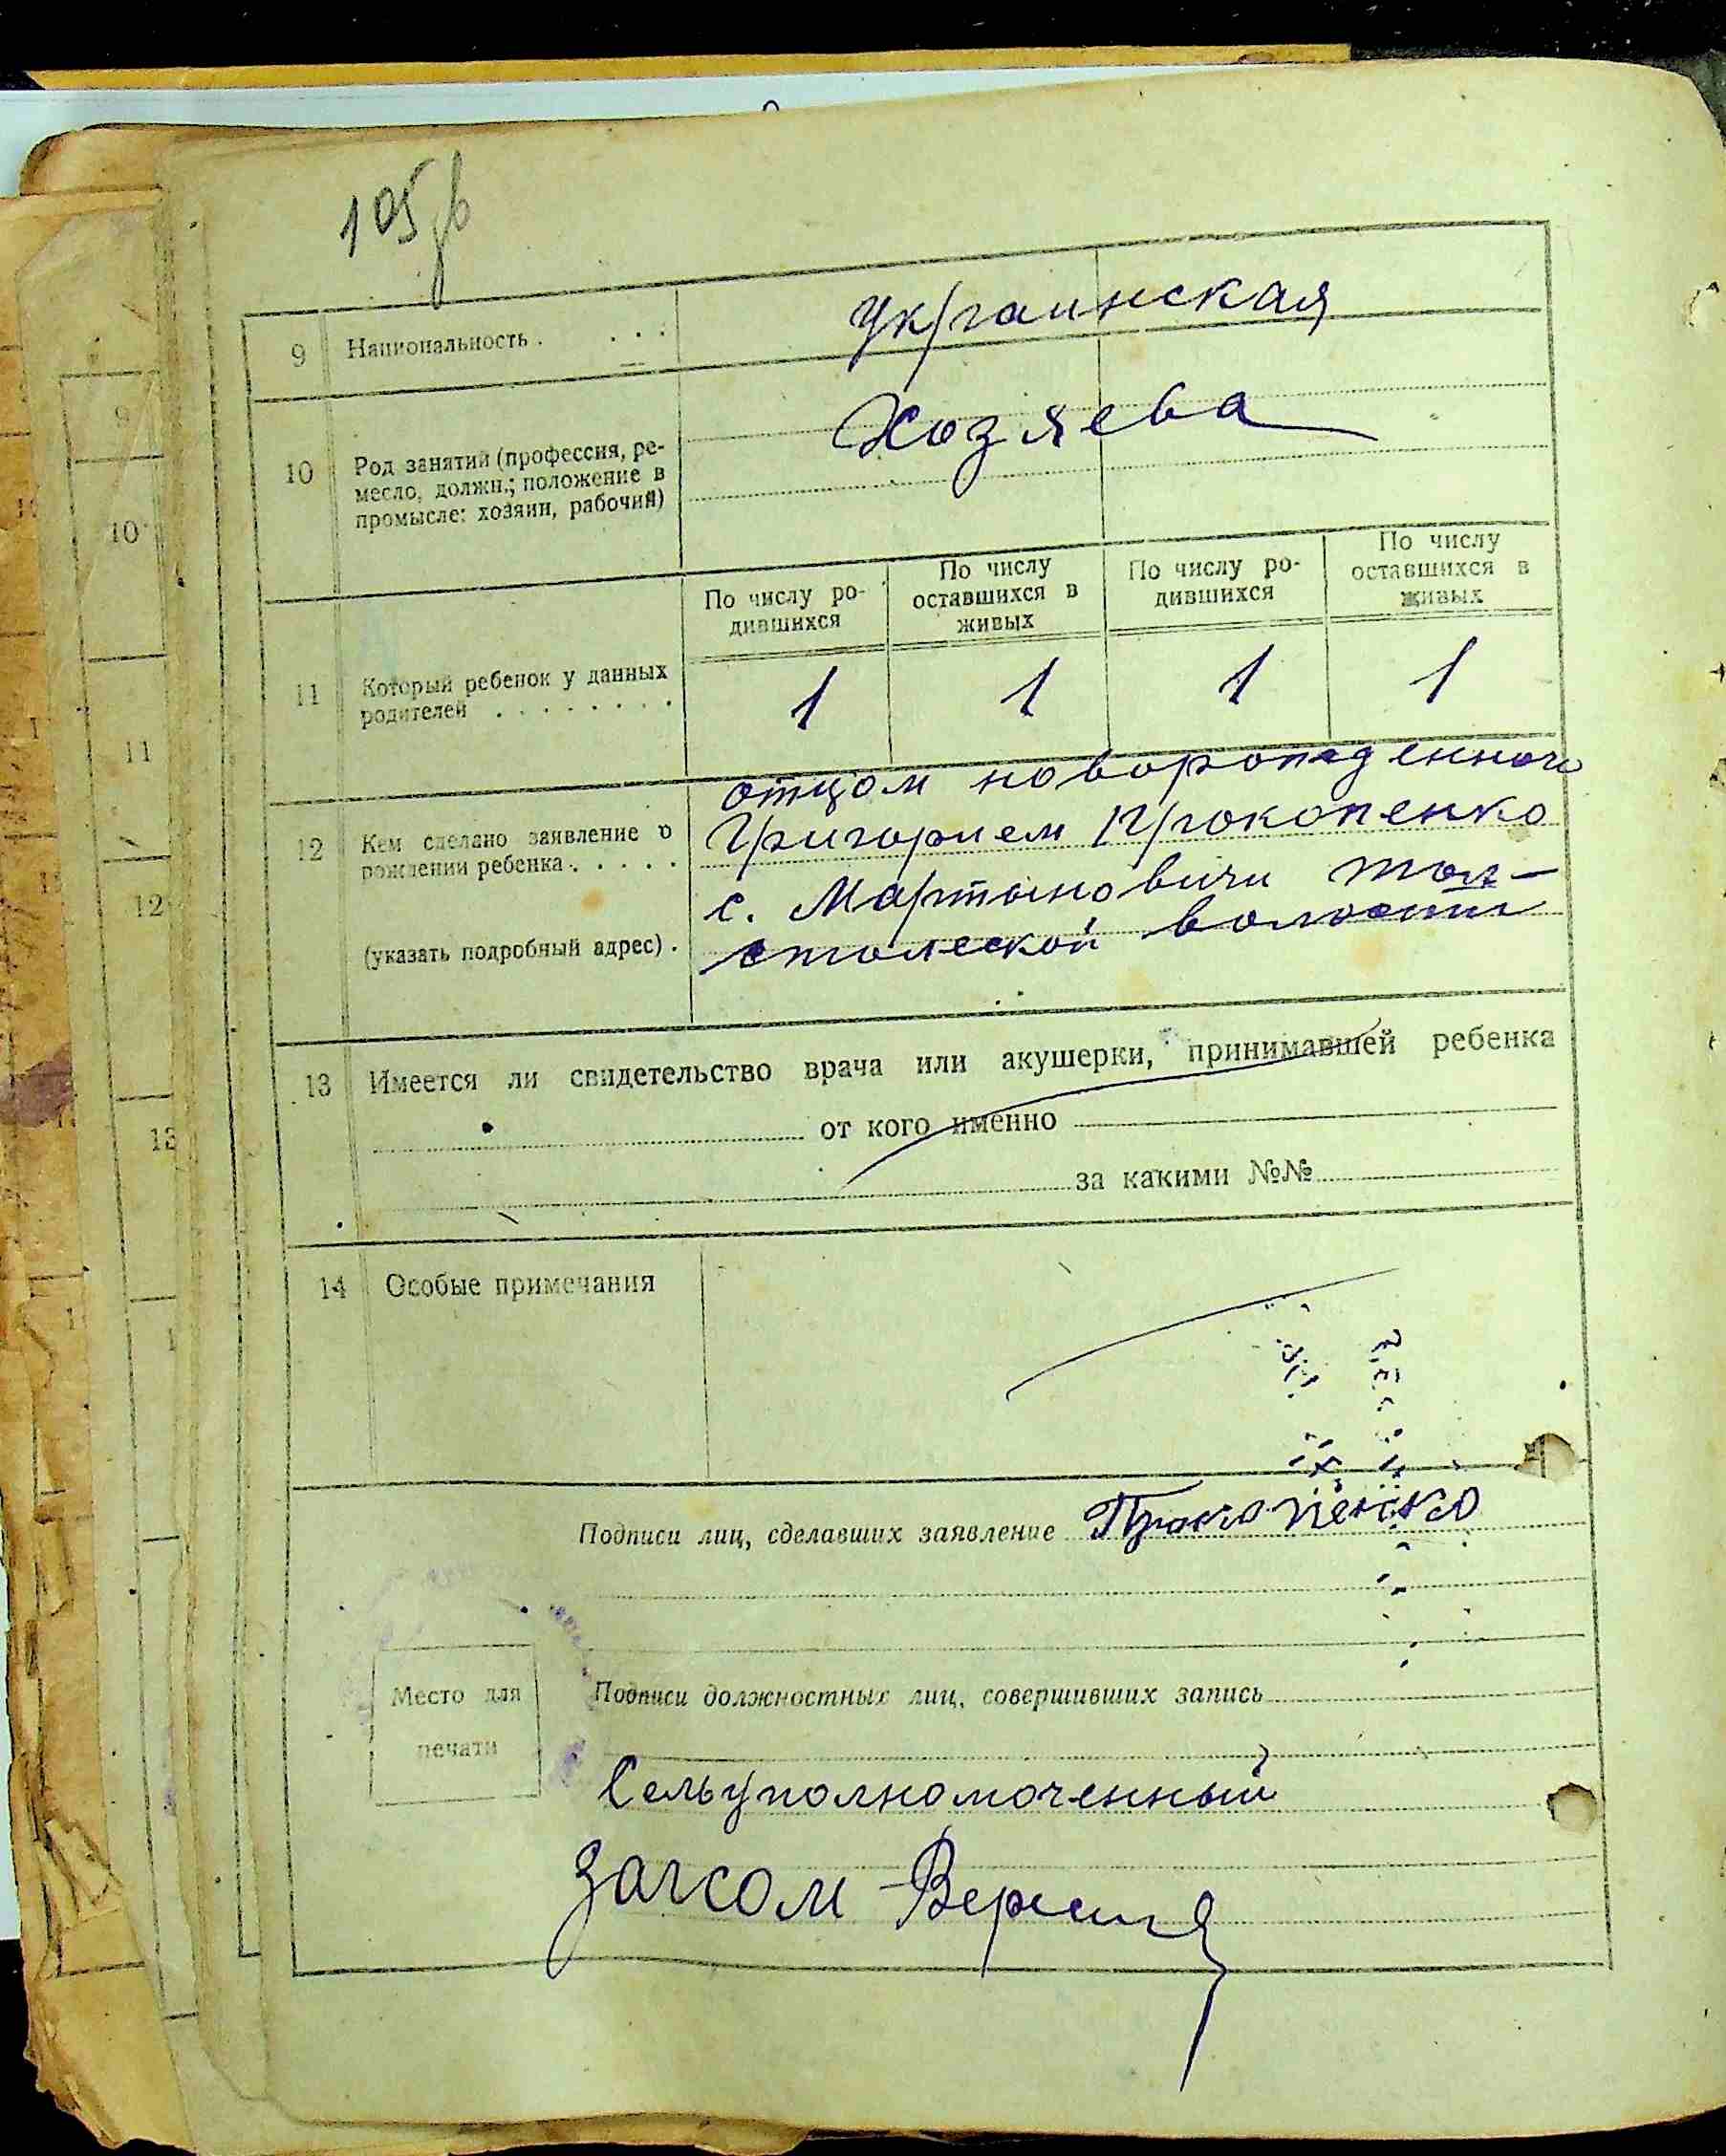 105
9 Национальность . . . . украинская
10 Род занятий (профессия, ре-
месло, должн.; положение в
промысле: хозяин, рабочий)
Хозяева
По числу ро-
дившихся
По числу
оставшихся в
живых
По числу ро-
дившихся
По числу
оставшихся в
живых
11 Который ребенок у данных
родителей . . . . . . . .
1 1 1 1
12 Кем сделано заявление о
рождении ребенка . . . . .
(указать подробный адрес) .
отцом новорожденного
Григорием Прокопенко
с. Мартыновичи тол-
столеской волости
13 Имеется ли свидетельство врача или акушерки, принимавшей ребенка
от кого именно
за какими №№
14 Особые примечания
Подписи лиц, сделавших заявление Прокопенко
Место для
печати
Подписи должностных лиц, совершивших запись
Сельуполномоченный
Загсом
9
10
11
12
13